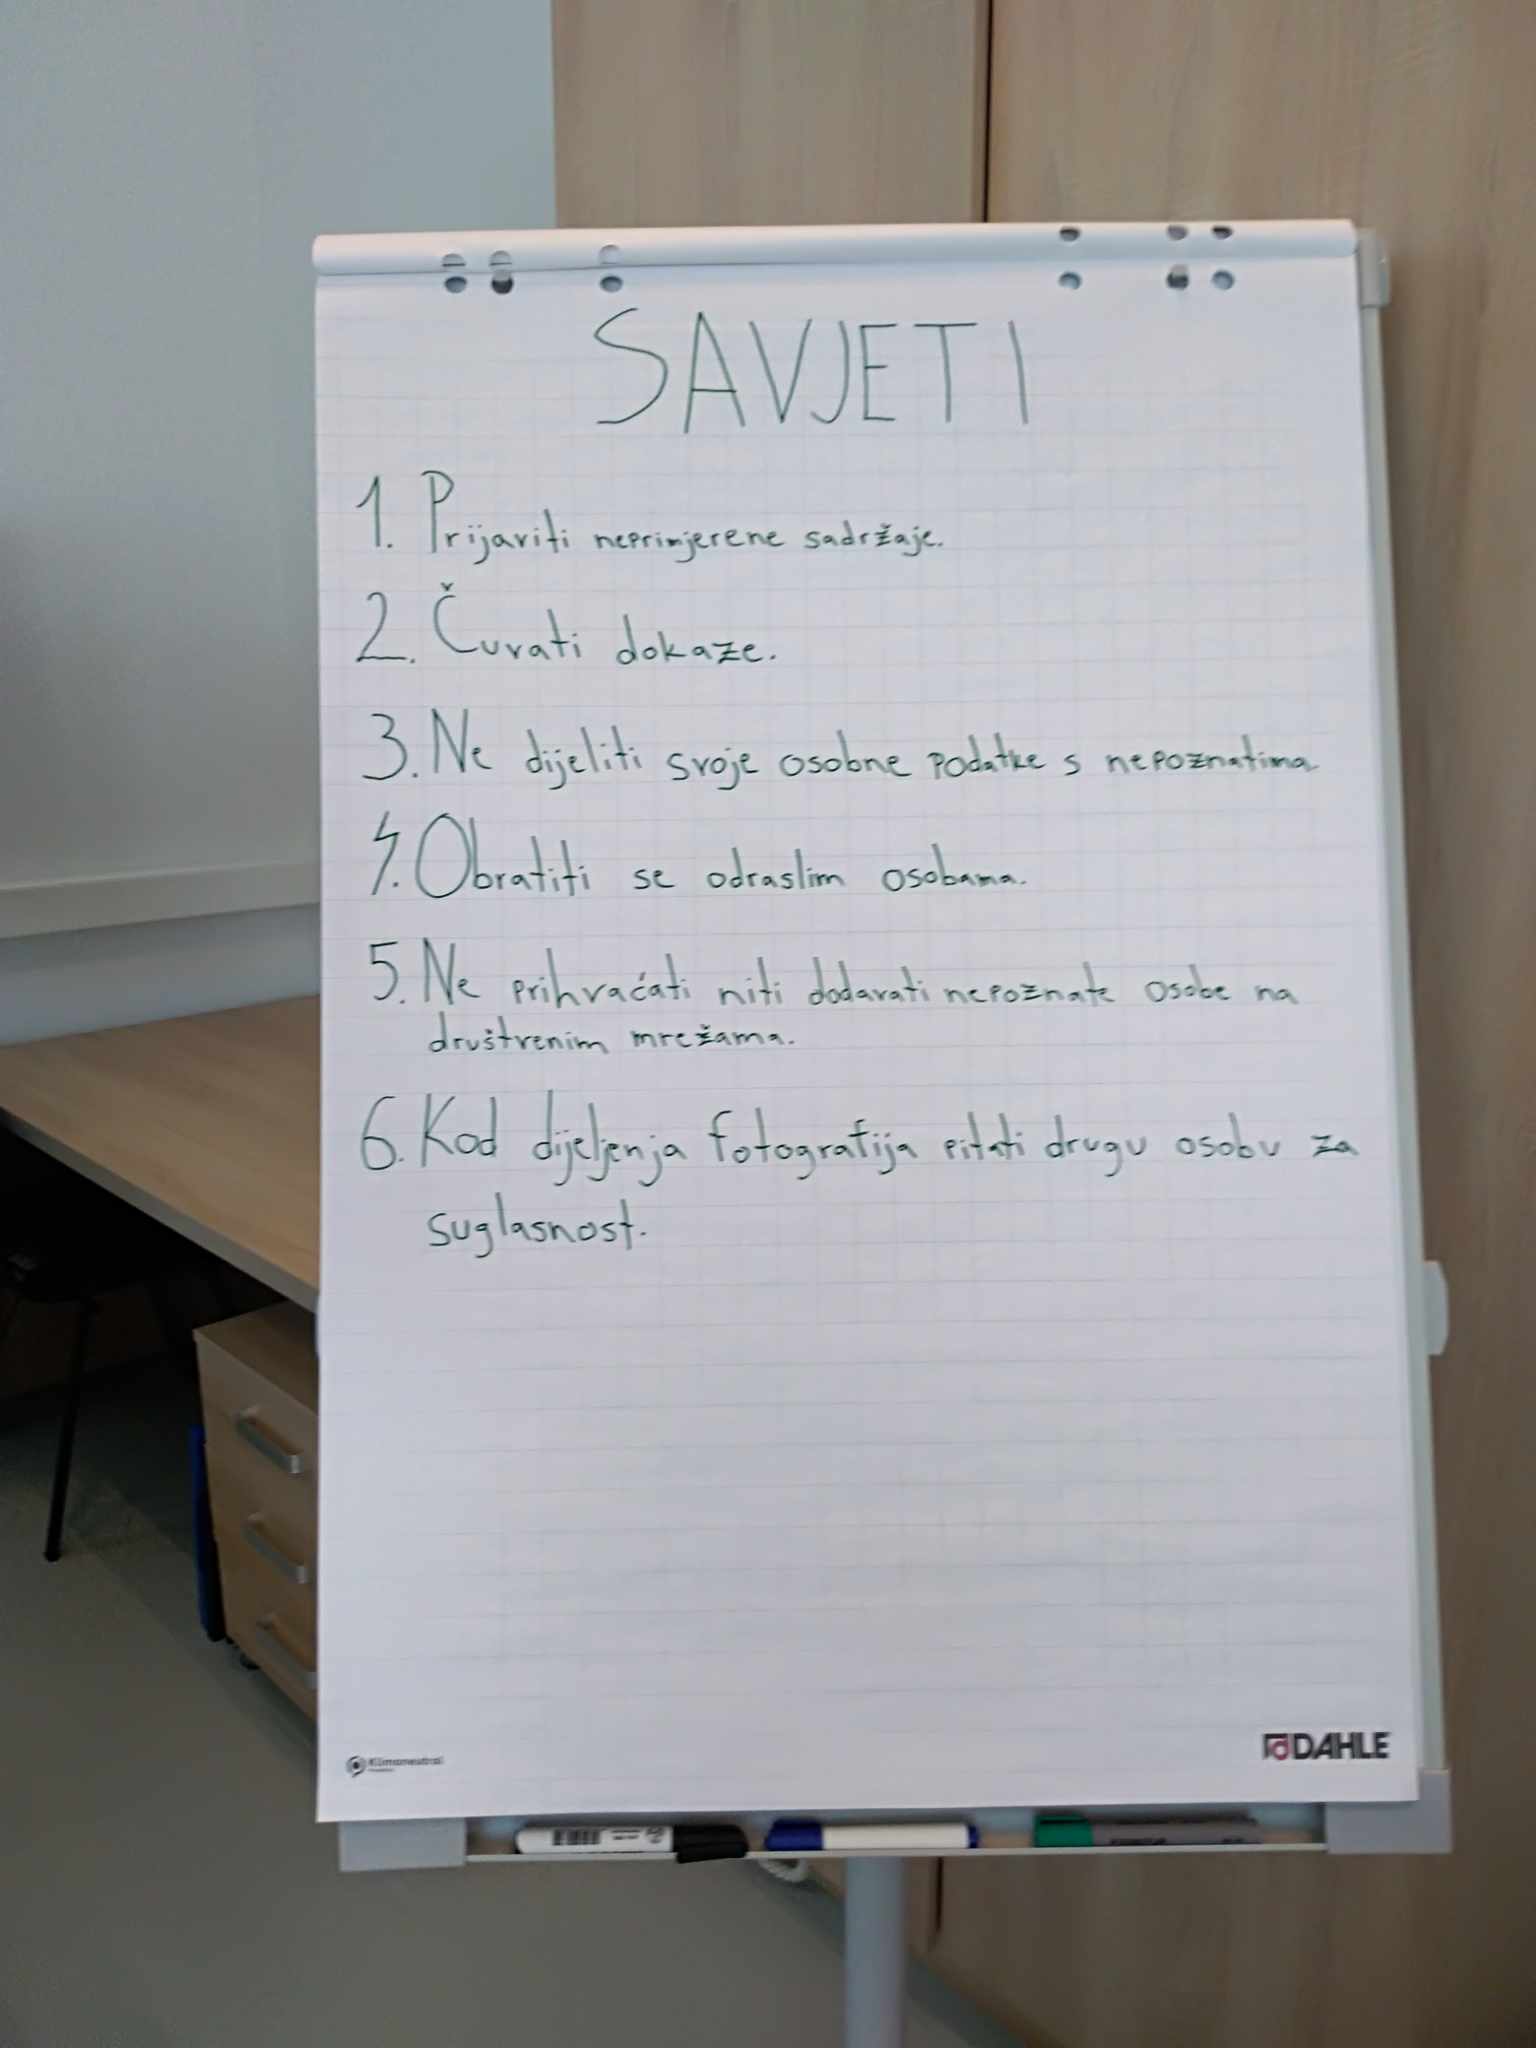 SAVJETI
1. Prijaviti neprimjerene sadržaje.
2. Čuvati dokaze.
3. Ne dijeliti svoje osobne podatke s nepoznatima.
4. Obratiti se odraslim osobama.
5. Ne prihvaćati niti dodavati nepoznate osobe na
društvenim mrežama.
6. Kod dijeljenja fotografija pitati drugu osobu za
suglasnost.
Klimaneutral
DAHLE